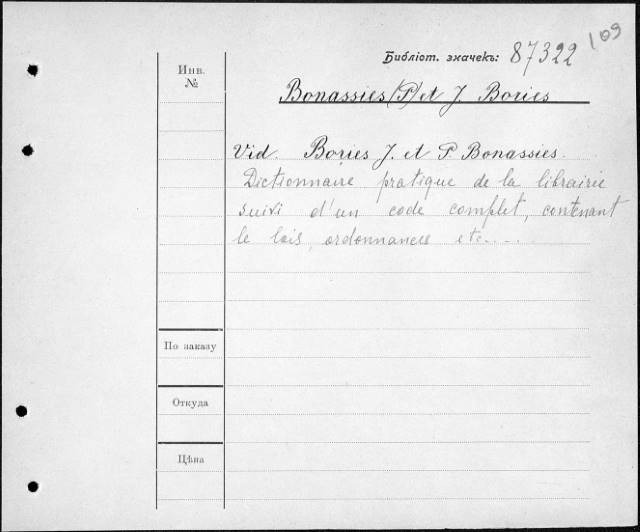 109
Библіот. значекъ: 87322
Инв.
№
Bonassies (P) et J. Bories
Vid. Bories J. et P. Bonassies.
Dictionnaire pratique de la librairie
suivi d'un code complet, contenant
le lois, ordonnances etc....
По заказу
Откуда
Цѣна